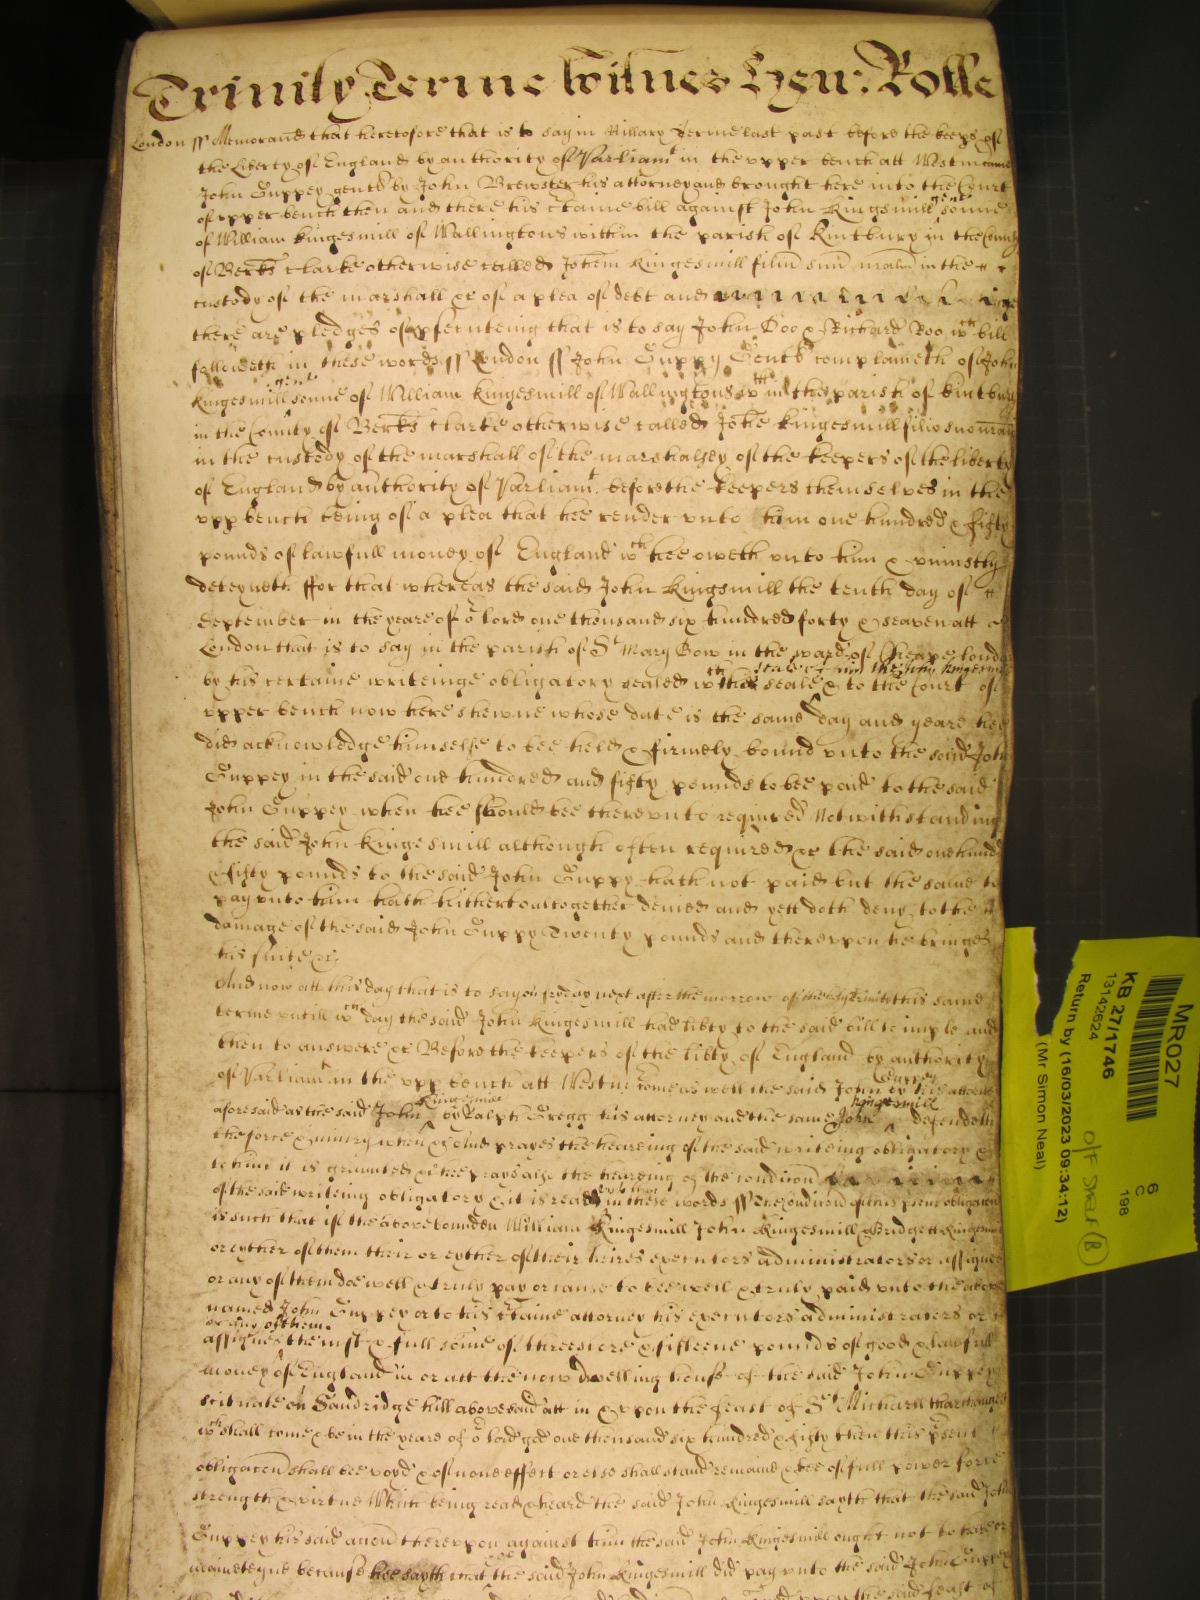 Trinity Terme Witnes Hen: Rolle
London ss Memorand that heretofore that is to say in Hillary Terme last past before the keeps of
the Liberty of England by authority of Parliamt in the upper bench att Westm came
John Guppey gent by John Brewster his attorney and brought here into the Court
of upper bench then and there his ctaine bill against John Kingsmill gent sonne
of William Kingesmill of Wallingtons within the parish of Kintbury in the County
of Berks Clarke otherwise called Johem Kingesmill filiu suu in the
custody of the marshall &c of a plea of debt and
there are pledges of psecuteing that is to say John Doo & Richard Roo wch bill
followeth in these words ss London ss John Guppy Gent complaineth of John
Kingesmill gent sonne of William Kingesmill of Wallingtons wthin the parish of Kintbury
in the County of Berks Clarke otherwise called Johe Kingesmill filio suo
in the custody of the marshall of the marshalsey of the keepers of the liberty
of England by authority of Parliamt before the keepers themselves in the
upp bench being of a plea that hee render unto him one hundred & fifty
pounds of lawfull money of England wch hee oweth unto him & uniustly
deteyneth ffor that whereas the said John Kingesmill the tenth day of
September in the yeare of or lord one thousand six hundred forty & seaven att
London that is to say in the parish of St Mary Bow in the ward of Cheape London
by his certaine writeinge obligatory sealed wth the seale of him the said John Kingesmill & to the Court of
upper bench now here shewne whose date is the same day and yeare hee
did acknowledge himselfe to bee held & firmely bound unto the said John
Guppey in the said one hundred and fifty pounds to bee paid to the said
John Guppey when hee should bee thereunto required Notwithstanding
the said John Kingesmill although often required &c the said one hund
& fifty pounds to the said John Guppy hath not paid but the same to
pay unto him hath hitherto altogether denied and yett doth deny to the
damage of the said John Guppy Twenty pounds and thereupon he bringes
his suite &c
And now att this day that is to say on fryday next after the morrow of the holy Trinitie this same
terme untill wch day the said John Kingesmill had libty to the said bill to imple and
then to answere &c Before the keepers of the libty of England by authority
of Parliamt in the upp bench att Westm come as well the said John Guppey by his attorney
aforesaid as the said John Kingesmill by Ralph Gregg his attorney and the same John Kingesmill defendeth
the force & iniury when &c And prayes the heareing of the said writeing obligatory &
to him it is graunted &c hee prays also the heareing of the condicion
of the said writeing obligatory & it is read unto him in these words ss The Condicion of this psent obligacon
is such that if the above bounden William Kingesmill John Kingesmill & Bridgett Kingesmill
or eyther of them their or eyther of their heires executors administrators or assignes
or any of them doe well & truly pay or cause to bee well & truly paid unto the above
named John Guppey or to his ctaine attorney his executors administrators or
assignes or any of them the iust & full some of threescore & fifteene pounds of good & lawfull
money of England in or att the now dwelling house of the said John Guppey
scituate on Saudridge hill abovesaid att in & upon the feast of St Michaell tharchangell
wch shall come & be in the yeare of or lord god one thousand six hundred & fifty then this psent
obligacon shall bee voyd & of none effect or else shall stand remaine & bee of full power force
strength & virtue Which being read & heard the said John Kingesmill sayth that the said John
Guppey his said accon thereupon against him the said John Kingesmill ought not to have or
mainteyne because hee sayth that the said John Kingesmill did pay unto the said John Guppey
upon the said feast of
MR027
KB 27/1746
13142624
Return by (16/03/2023 09:34:12)
(Mr Simon Neal)
6
C
198
O/F Star
B